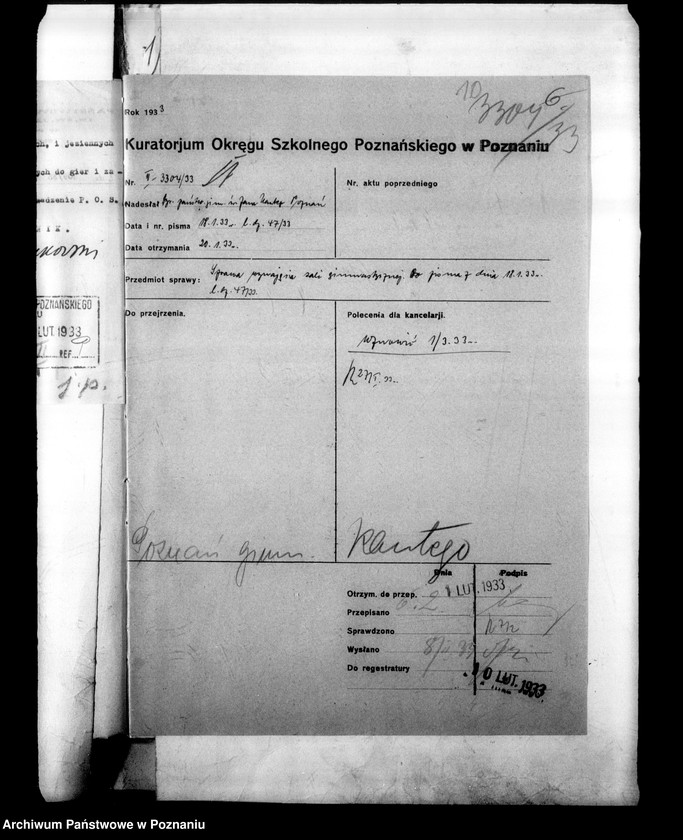 1
10
3304 6
33
Rok 1933
Kuratorjum Okręgu Szkolnego Poznańskiego w Poznaniu
Nr. II-3304/33
Nr. aktu poprzedniego
Nadesłał Dyr. państw. gim. św. Jana Kantego Poznań
Data i nr. pisma 18.1.33. l. dz. 47/33
Data otrzymania 20.1.33.
Przedmiot sprawy: Sprawa wynajęcia sali gimnastycznej do pisma z dnia 18.1.33.
l. dz. 47/33.
Do przejrzenia.
Polecenia dla kancelarji.
Wznowić 1/3.33.
Poznań gimn. Kantego
Dnia Podpis
Otrzym. de przep. 1 LUT. 1933
Przepisano 6.2
Sprawdzono
Wysłano 8/II 33
Do regestratury
10 LUT. 1933
ch, i jesiennych
ych do gier i za-
wadzenie P. O. S.
N I K .
POZNAŃSKIEGO
LUT. 1933
REF.
j.p.
Archiwum Państwowe w Poznaniu